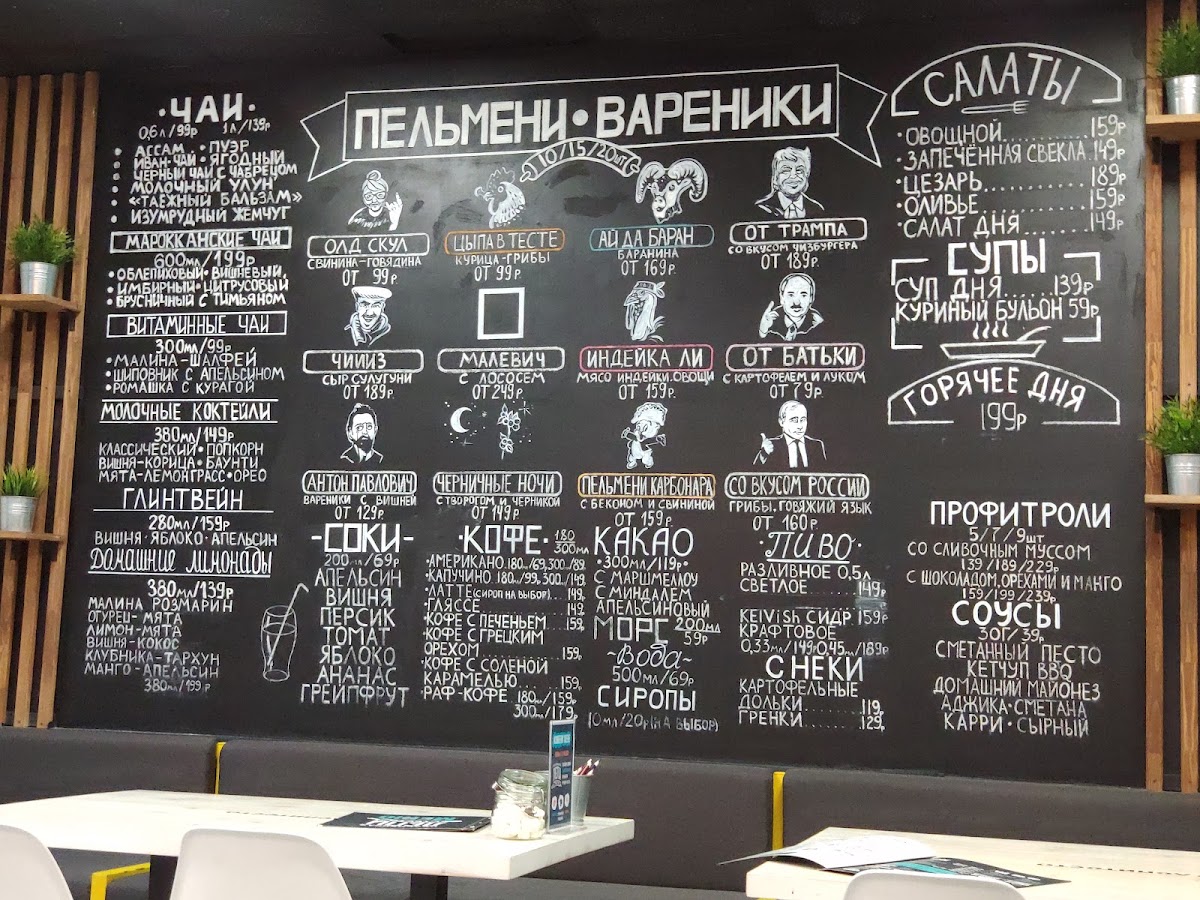 ·ЧАИ·
0,6л/99р 1л/139р
• АССАМ · ПУЭР
• ИВАН-ЧАЙ · ЯГОДНЫЙ
• ЧЕРНЫЙ ЧАЙ С ЧАБРЕЦОМ
• МОЛОЧНЫЙ УЛУН
• «ТАЕЖНЫЙ БАЛЬЗАМ»
• ИЗУМРУДНЫЙ ЖЕМЧУГ
МАРОККАНСКИЕ ЧАИ
600мл/199р
•ОБЛЕПИХОВЫЙ•ВИШНЕВЫЙ,
•ИМБИРНЫЙ•ЦИТРУСОВЫЙ
•БРУСНИЧНЫЙ С ТИМЬЯНОМ
ВИТАМИННЫЕ ЧАИ
300мл/99р
•МАЛИНА-ШАЛФЕЙ
•ШИПОВНИК С АПЕЛЬСИНОМ
•РОМАШКА С КУРАГОЙ
МОЛОЧНЫЕ КОКТЕЙЛИ
380мл/149р
КЛАССИЧЕСКИЙ•ПОПКОРН
ВИШНЯ-КОРИЦА•БАУНТИ
МЯТА-ЛЕМОНГРАСС•ОРЕО
ГЛИНТВЕЙН
280мл/159р
ВИШНЯ•ЯБЛОКО•АПЕЛЬСИН
Домашние лимонады
380мл/139р
МАЛИНА РОЗМАРИН
ОГУРЕЦ-МЯТА
ЛИМОН-МЯТА
ВИШНЯ-КОКОС
КЛУБНИКА-ТАРХУН
МАНГО-АПЕЛЬСИН
380мл/199р
ПЕЛЬМЕНИ•ВАРЕНИКИ
10/15/20шт
ОЛД СКУЛ
СВИНИНА-ГОВЯДИНА
ОТ 99р.
ЦЫПА В ТЕСТЕ
КУРИЦА-ГРИБЫ
ОТ 99р.
АЙ ДА БАРАН
БАРАНИНА
ОТ 169р.
ОТ ТРАМПА
СО ВКУСОМ ЧИЗБУРГЕРА
ОТ 189р.
ЧИИИЗ
СЫР СУЛУГУНИ
ОТ 189р.
МАЛЕВИЧ
С ЛОСОСЕМ
ОТ 249р.
ИНДЕЙКА ЛИ
МЯСО ИНДЕЙКИ.ОВОЩИ
ОТ 159р.
ОТ БАТЬКИ
С КАРТОФЕЛЕМ И ЛУКОМ
ОТ 79р.
АНТОН ПАВЛОВИЧ
ВАРЕНИКИ С ВИШНЕЙ
ОТ 129р.
ЧЕРНИЧНЫЕ НОЧИ
С ТВОРОГОМ И ЧЕРНИКОЙ
ОТ 149р.
ПЕЛЬМЕНИ КАРБОНАРА
С БЕКОНОМ И СВИНИНОЙ
ОТ 159р.
СО ВКУСОМ РОССИИ
ГРИБЫ, ГОВЯЖИЙ ЯЗЫК
ОТ 160р.
-СОКИ-
200мл/69р
АПЕЛЬСИН
ВИШНЯ
ПЕРСИК
ТОМАТ
ЯБЛОКО
АНАНАС
ГРЕЙПФРУТ
·КОФЕ· 180/300мл
•АМЕРИКАНО.180мл/69,300/89.
•КАПУЧИНО.180мл/99,300/149.
•ЛАТТЕ(СИРОП НА ВЫБОР)....149.
•ГЛЯССЕ..........149р
•КОФЕ С ПЕЧЕНЬЕМ....159р
•КОФЕ С ГРЕЦКИМ
ОРЕХОМ..........159р
•КОФЕ С СОЛЕНОЙ
КАРАМЕЛЬЮ......159р
•РАФ-КОФЕ 180мл/159р
300мл/179р
КАКАО
•300мл/119р•
С МАРШМЕЛЛОУ
С МИНДАЛЕМ
АПЕЛЬСИНОВЫЙ
МОРС 200мл
59р
-Вода-
500мл/69р
СИРОПЫ
10мл/20р(НА ВЫБОР)
·ПИВО·
РАЗЛИВНОЕ 0,5л
СВЕТЛОЕ......149р
KELVISH СИДР 159р
КРАФТОВОЕ
0,33мл/149р 0,45мл/189р
СНЕКИ
КАРТОФЕЛЬНЫЕ
ДОЛЬКИ........119р
ГРЕНКИ........129р
САЛАТЫ
•ОВОЩНОЙ..........159р
•ЗАПЕЧЁННАЯ СВЕКЛА.149р
•ЦЕЗАРЬ............189р
•ОЛИВЬЕ............159р
•САЛАТ ДНЯ........149р
СУПЫ
СУП ДНЯ......139р
КУРИНЫЙ БУЛЬОН 59р
ГОРЯЧЕЕ ДНЯ
199р
ПРОФИТРОЛИ
5/7/9шт
СО СЛИВОЧНЫМ МУССОМ
139/189/229р
С ШОКОЛАДОМ,ОРЕХАМИ И МАНГО
159/199/239р
СОУСЫ
30г/39р
СМЕТАННЫЙ ПЕСТО
КЕТЧУП BBQ
ДОМАШНИЙ МАЙОНЕЗ
АДЖИКА•СМЕТАНА
КАРРИ•СЫРНЫЙ